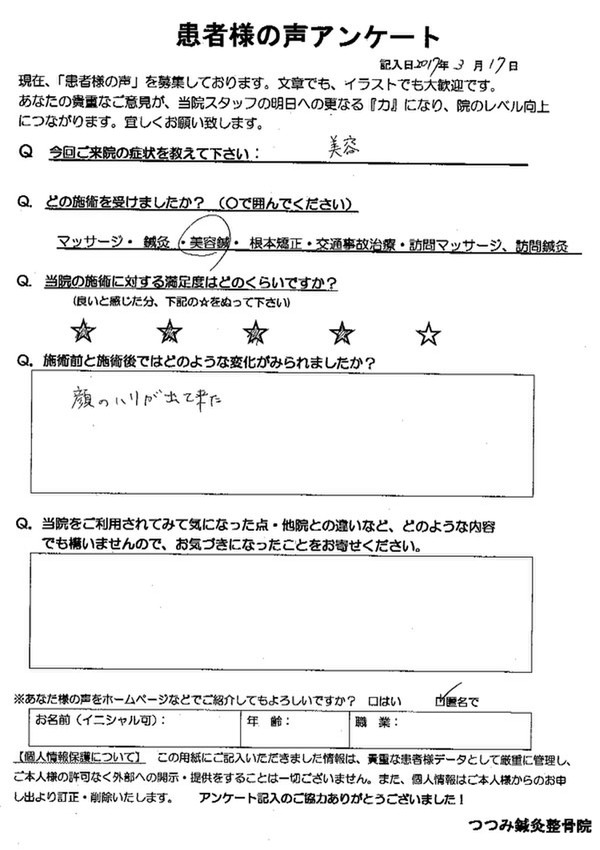 患者様の声アンケート
記入日2017年3月17日
現在、「患者様の声」を募集しております。文章でも、イラストでも大歓迎です。
あなたの貴重なご意見が、当院スタッフの明日への更なる『力』になり、院のレベル向上
につながります。宜しくお願い致します。
Q 今回ご来院の症状を教えて下さい： 美容
Q. どの施術を受けましたか？（○で囲んでください）
マッサージ・ 鍼灸 ・美容鍼・ 根本矯正・交通事故治療・訪問マッサージ、訪問鍼灸
Q. 当院の施術に対する満足度はどのくらいですか？
（良いと感じた分、下記の☆をぬって下さい）
★ ★ ★ ★ ☆
Q. 施術前と施術後ではどのような変化がみられましたか？
顔のハリが出て来た
Q. 当院をご利用されてみて気になった点・他院との違いなど、どのような内容
でも構いませんので、お気づきになったことをお寄せください。
※あなた様の声をホームページなどでご紹介してもよろしいですか？ 口はい ☑匿名で
お名前（イニシャル可）： 年 齢： 職 業：
【個人情報保護について】 この用紙にご記入いただきました情報は、貴重な患者様データとして厳重に管理し、
ご本人様の許可なく外部への開示・提供をすることは一切ございません。また、個人情報はご本人様からのお申
し出より訂正・削除いたします。 アンケート記入のご協力ありがとうございました！
つつみ鍼灸整骨院